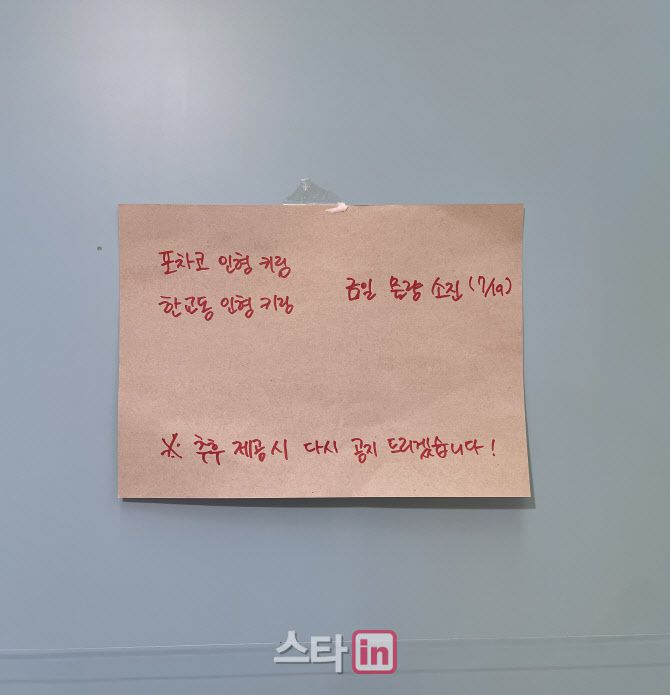 포차코 인형 키링
한교동 인형 키링
금일 물량 소진 (7/19)
※ 추후 제공시 다시 공지 드리겠습니다!
스타in